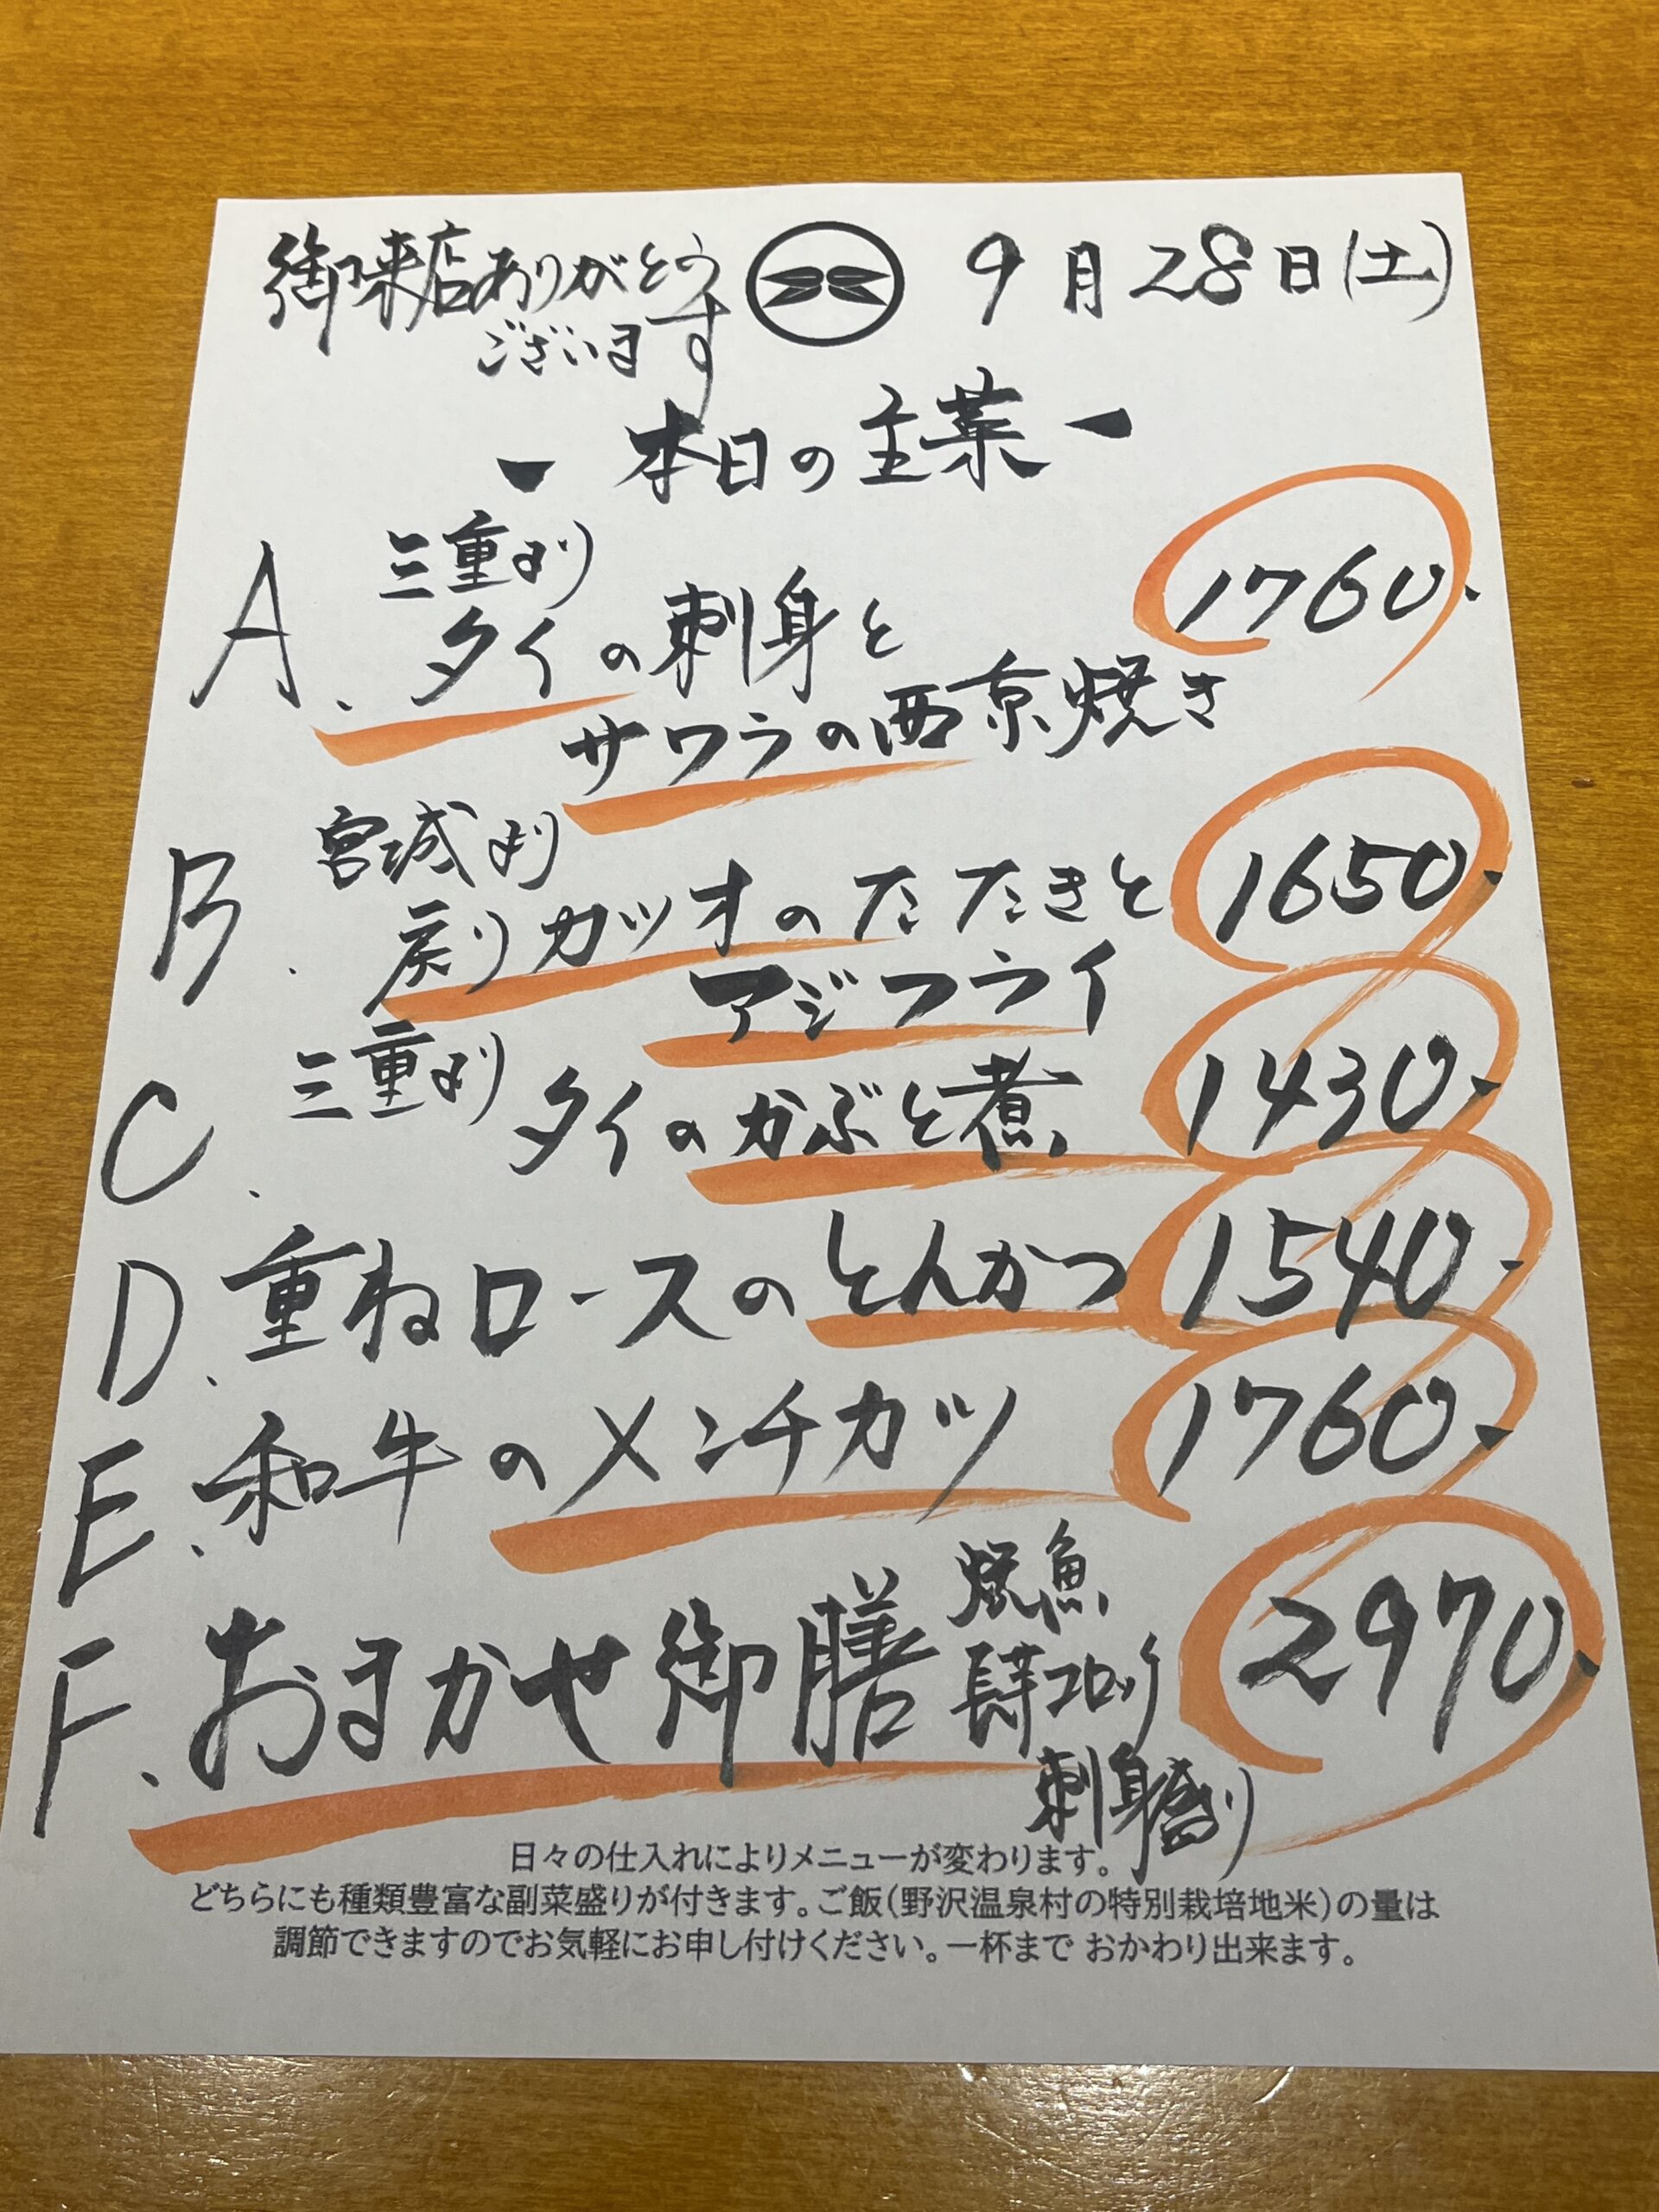 御来店ありがとう
ございます
9月28日(土)
- 本日の主菜 -
A. 三重より
タイの刺身と
サワラの西京焼き
1760.
B. 宮城より
戻りカツオのたたきと
アジフライ
1650.
C. 三重より
タイのかぶと煮
1430.
D. 重ねロースのとんかつ 1540.
E. 和牛のメンチカツ 1760.
F. おまかせ御膳
焼魚
長芋コロッケ
刺身盛り
2970.
日々の仕入れによりメニューが変わります。
どちらにも種類豊富な副菜盛りが付きます。ご飯(野沢温泉村の特別栽培地米)の量は
調節できますのでお気軽にお申し付けください。一杯まで おかわり出来ます。